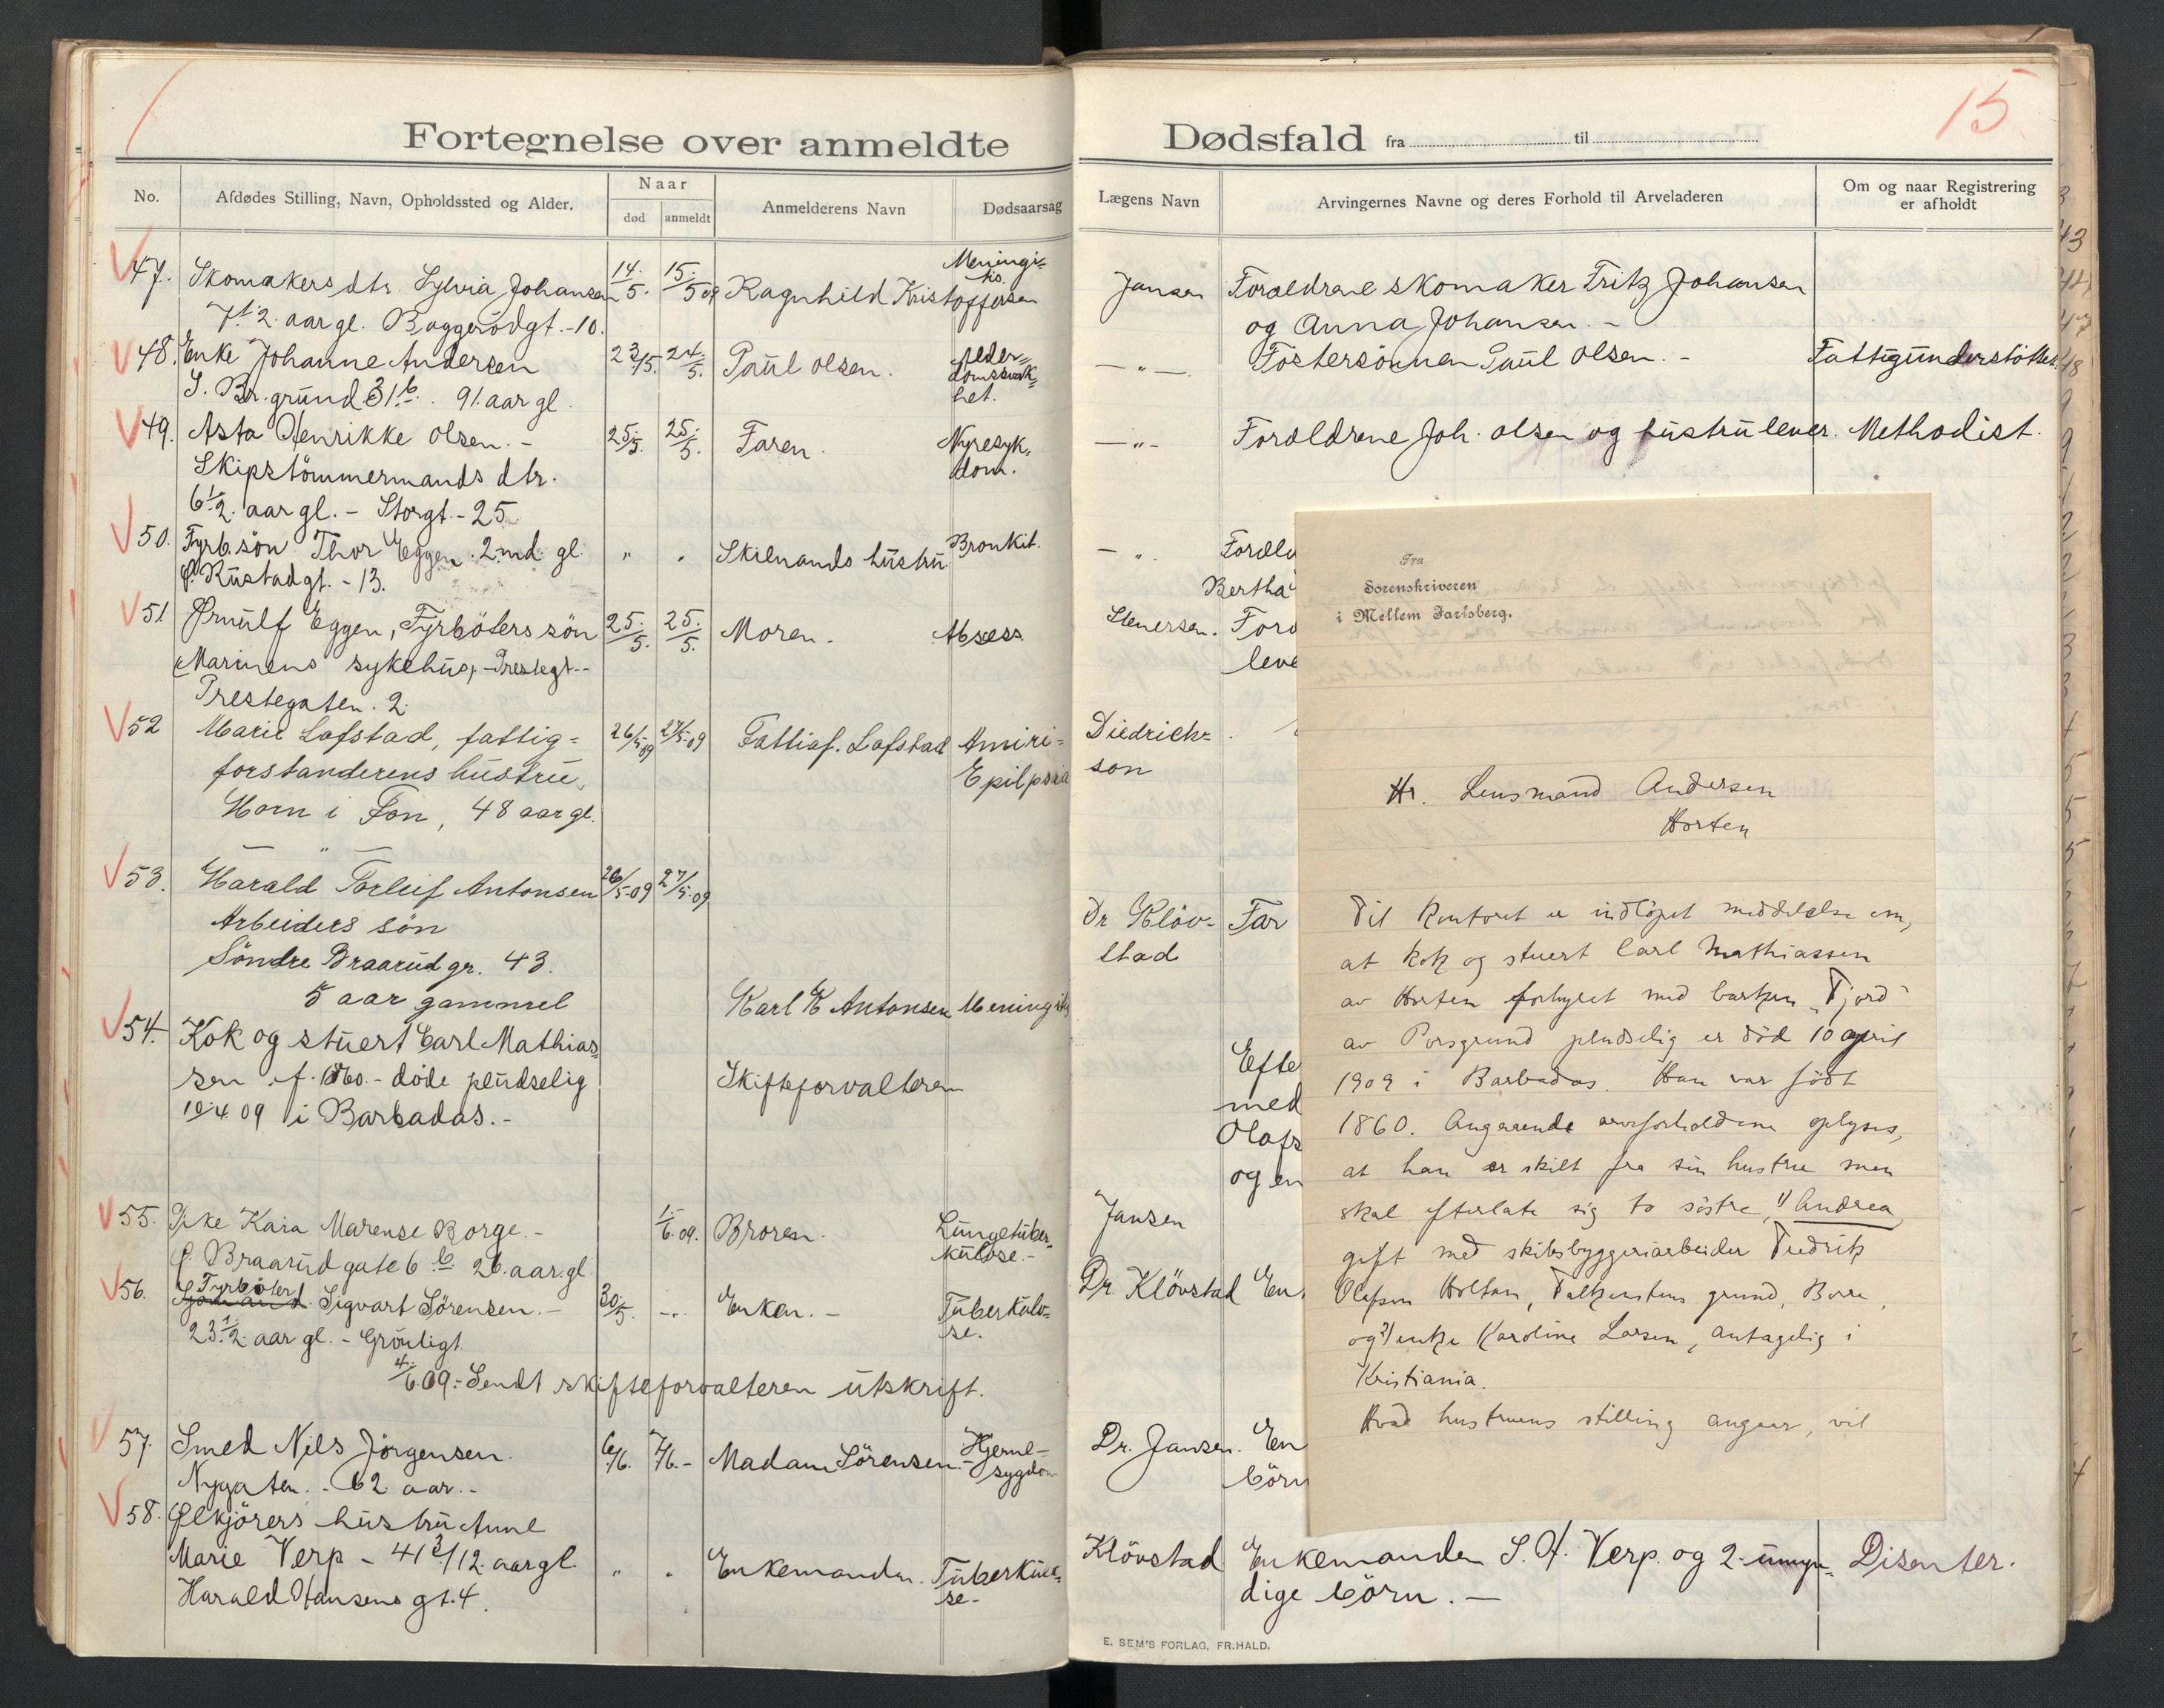 15
Fortegnelse over anmeldte
No.
Afdødes Stilling, Navn, Opholdssted og Alder.
Naar
død
anmeldt
Anmelderens Navn
Dødsaarsag
47.
Skomakers dtr. Sylvia Johansen
14./5.
15./5 09
Ragnhild Kristoffersen
Meningi-
tis.
7 1/2 aar gl. Baggerödgt.-10.
48.
Enke Johanne Andersen
23/5.
24./5.
Paul olsen.
Alder-
domssvak-
het.
S. Br. grund 31 b. 91. aar gl.
49.
Asta Henrikke olsen.-
25./5.
25./5.
Faren.
Nyresyk-
dom.
Skipstömmermands dtr.
6 1/2. aar gl. - Storgt.-25
50.
Fyrb.sön Thor Eggen. 2 md. gl.
"
"
Skilnands hustru
Bronkit.
Ø. Rustadgt. - 13.
51
Ørnulf Eggen, Fyrböters sön
25./5.
25./5.
Moren.
Absess
Marinens sykehus, - Prestegt.-
Prestegaten. 2.
52
Marie Lofstad, fattig-
26/5-09
27/5-09
Fattigf. Lofstad
Epilpsia
forstanderens hustru,
Horn i Fon, 48 aar gl.
53.
Harald Torleif Antonsen
26/5-09
27/5-09
Arbeiders sön
Söndre Braarud gr. 43.
5 aar gammel
Karl E Antonsen
Meningitis
54.
Kok og stuert Carl Mathias-
sen. f. 1860.- döde pludselig
Skifteforvalteren
10/4 09 i Barbadas.-
55.
Pike Kaia Marense Borge.-
1./6. 09.
Broren.
Lungetuber-
kulose.-
Ø. Braarud gate 6 b. 26. aar. gl.
56.
Fyrböter
Sjömand Sigvart Sörensen.-
30./5.
-"-
Enken.-
Tuberkulo-
se.
23 1/2. aar gl. - Grönligt.
4./6. 09.- Sendt skifteforvalteren utskrift.
57.
Smed Nils Jörgensen.
6/6.
7/6.-
Madam Sörensen.
Hjerne-
sygdom
Nygaten. - 62 aar.-
58.
Ølkjörers hustru Anne
Marie Verp - 41 3/12. aar gl.
"
"
Enkemanden.
Tuberkulo-
se-
Harald Hansens gt. 4.
Dødsfald fra til
Lægens Navn
Arvingernes Navne og deres Forhold til Arveladeren
Om og naar Registrering
er afholdt
Jansen
Foræeldrene skomaker Fritz Johansen
og Anna Johansen.-
-"-
Föstersönnen Paul olsen.-
Fattigunderstöttet.
-"-
Foræeldrene Joh. olsen og hustru lever.
Methodist.
-"
Foræeld
Bertha
Stenersen.
Foræ
leve
Diedrich-
son
Dr Klöv-
stad
Far
Efte
med
Olafs
og en
Jansen
Dr. Klövstad
En
Dr. Jansen.
En
börn
Klövstad
Enkemanden S. A. Verp. og 2. umyn-
Disenter.
dige börn.-
E. SEM'S FORLAG, FR.HALD.
Fra
Sorenskriveren
i Mellem Jarlsberg.
Hr. Lensmand Andersen
Horten
Til kontoret er indlöpet meddelelse om,
at kok og stuert Carl Mathiassen
av Horten forhyret med barken "Fjord"
av Porsgrund pludselig er död 10 april
1909 i Barbados. Han var födt
1860. Angaaende arveforholdene oplyses,
at han er skilt fra sin hustru men
skal efterlate sig to söstre, 1) Andrea
gift med skibsbyggeriarbeider Fredrik
Olafsen Holtan, Falkenstens grund, Borre,
og 2) enke Karoline Larsen, antagelig i
Kristiania.
Hvad hustruens stilling angaar, vil